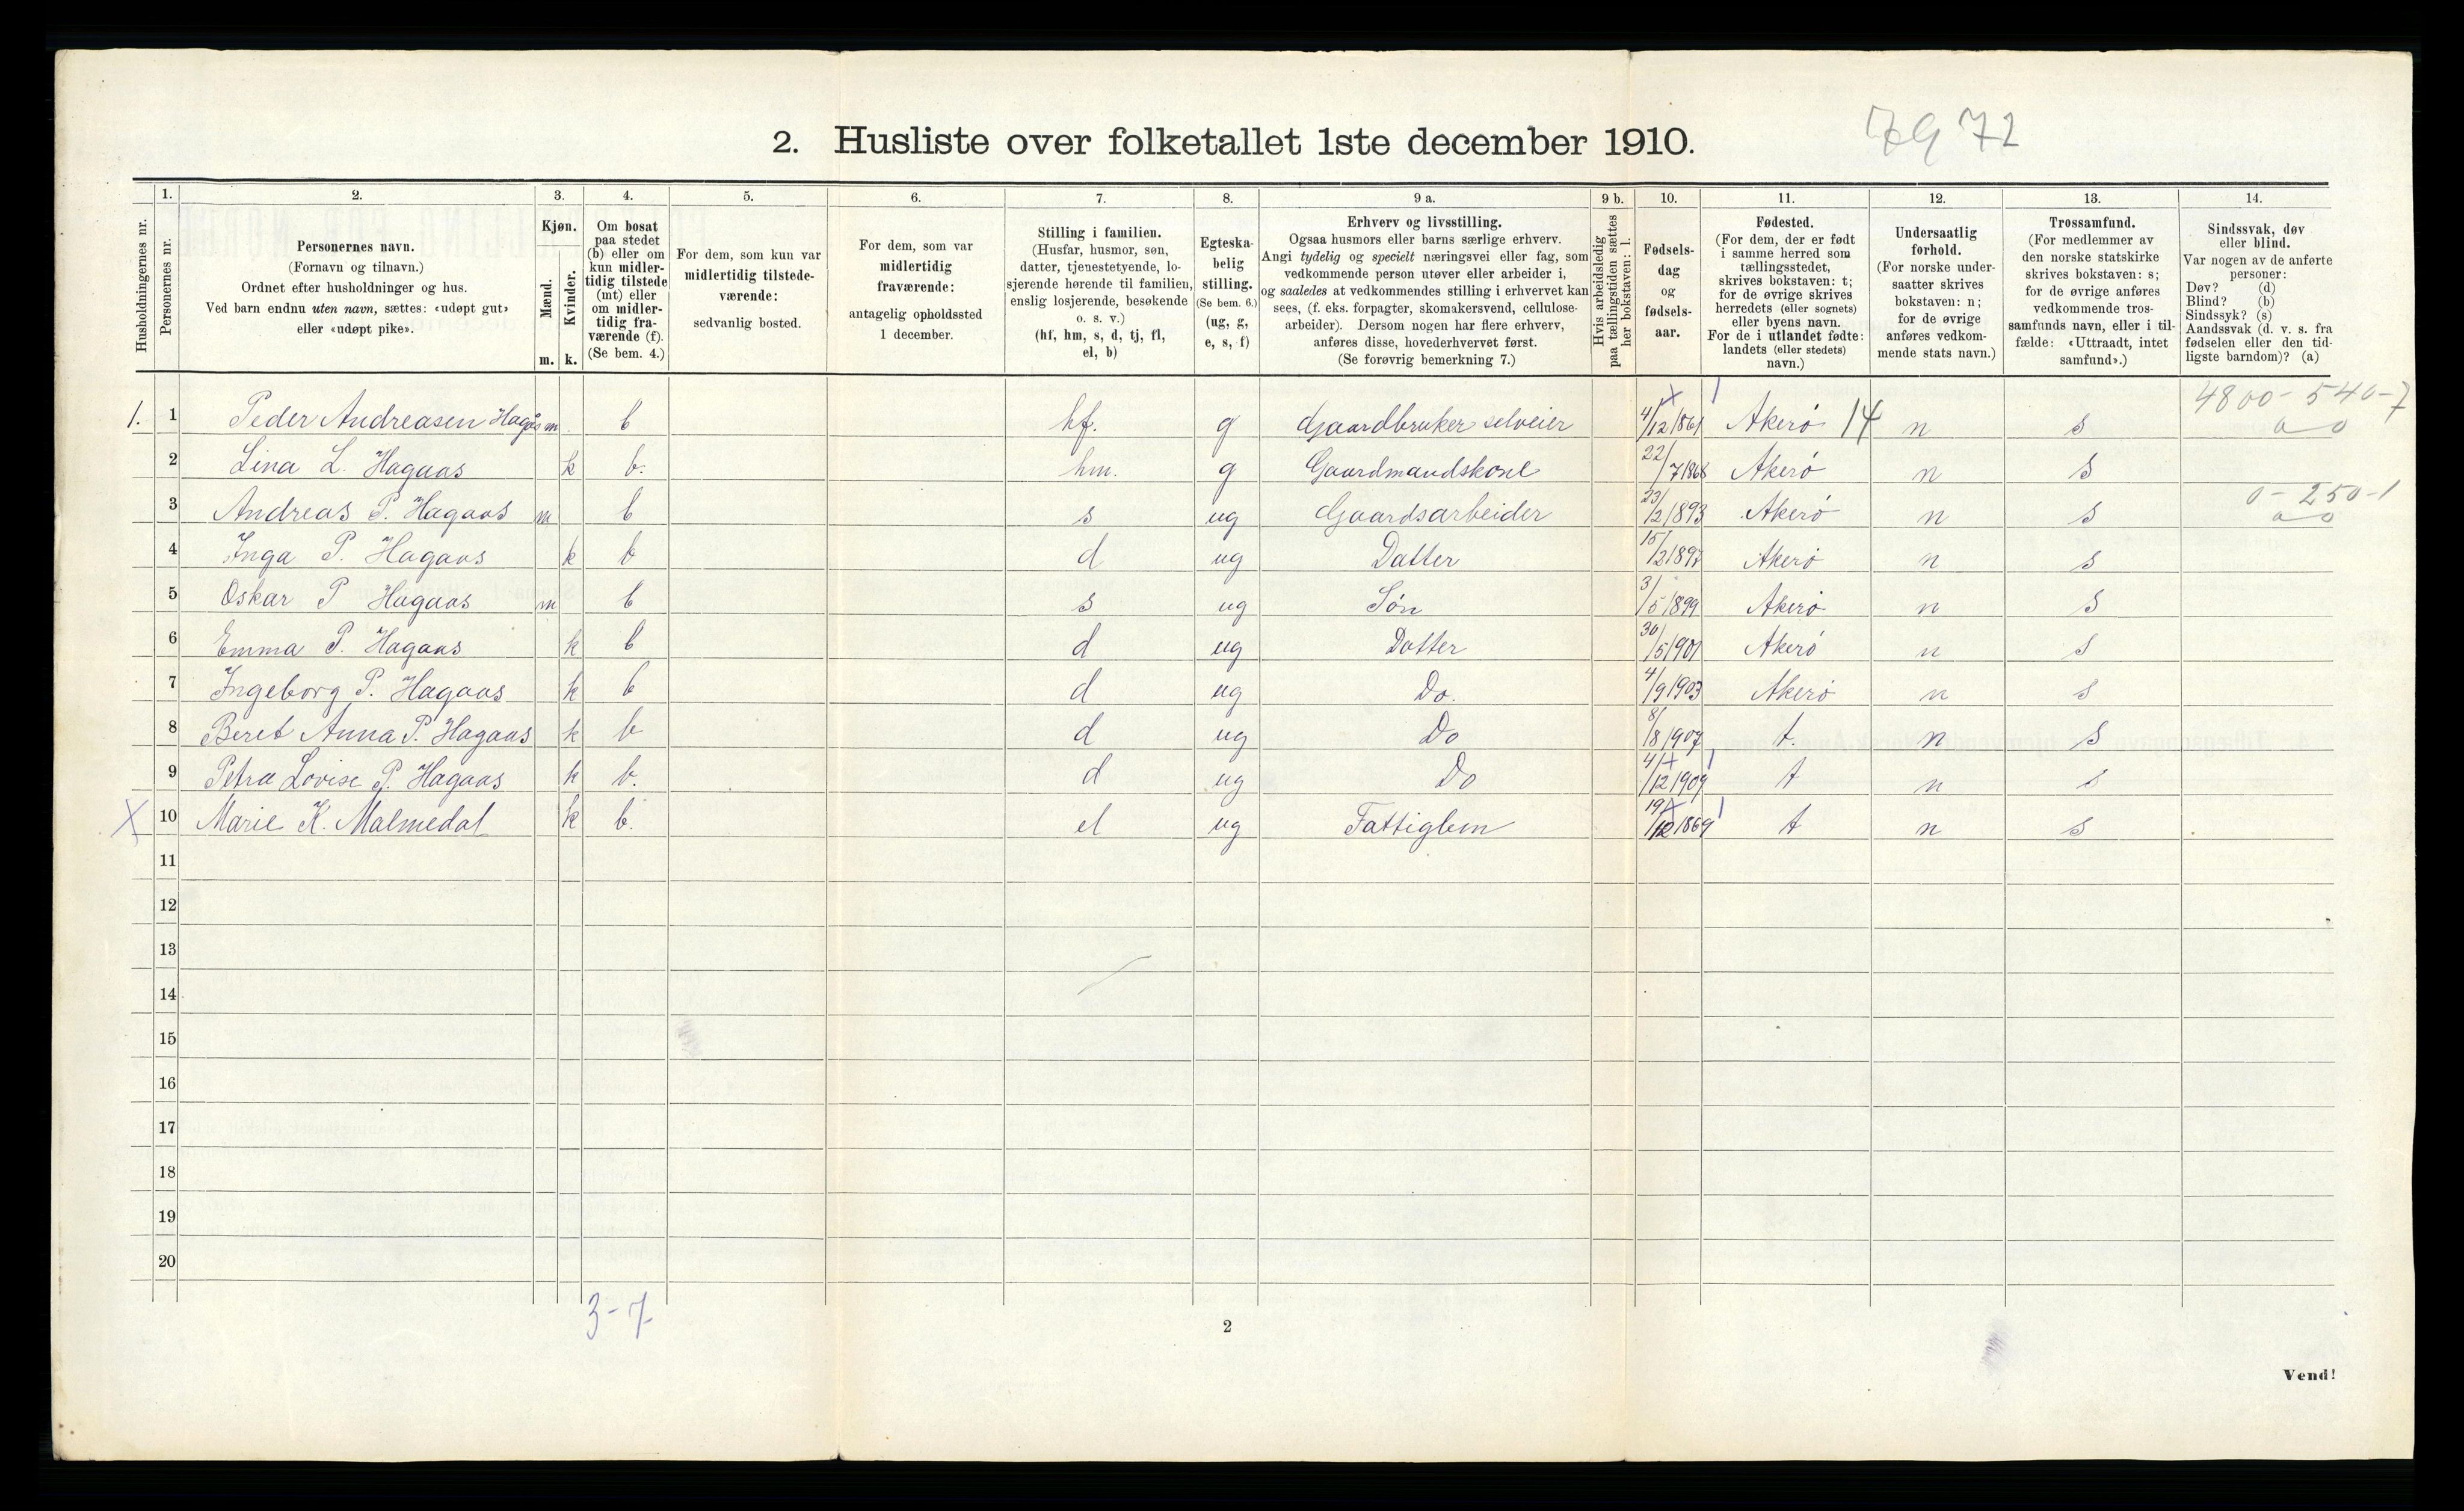 2. Husliste over folketallet 1ste december 1910.
7972
Husholdningernes nr.
1.
Personernes nr.
2.
Personernes navn.
(Fornavn og tilnavn.)
Ordnet efter husholdninger og hus.
Ved barn endnu uten navn, sættes: «udøpt gut»
eller «udøpt pike».
3.
Kjøn.
Mænd.
Kvinder.
m. k.
4.
Om bosat
paa stedet
(b) eller om
kun midler-
tidig tilstede
(mt) eller
om midler-
tidig fra-
værende (f).
(Se bem. 4.)
5.
For dem, som kun var
midlertidig tilstede-
værende:
sedvanlig bosted.
6.
For dem, som var
midlertidig
fraværende:
antagelig opholdssted
1 december.
7.
Stilling i familien.
(Husfar, husmor, søn,
datter, tjenestetyende, lo-
sjerende hørende til familien,
enslig losjerende, besøkende
o. s. v.)
(hf, hm, s, d, tj, fl,
el, b)
8.
Egteska-
belig
stilling.
(Se bem. 6.)
(ug, g,
e, s, f)
9 a.
Erhverv og livsstilling.
Ogsaa husmors eller barns særlige erhverv.
Angi tydelig og specielt næringsvei eller fag, som
vedkommende person utøver eller arbeider i,
og saaledes at vedkommendes stilling i erhvervet kan
sees, (f. eks. forpagter, skomakersvend, cellulose-
arbeider). Dersom nogen har flere erhverv,
anføres disse, hovederhvervet først.
(Se forøvrig bemerkning 7.)
9 b.
Hvis arbeidsledig
paa tællingstiden sættes
her bokstaven: l.
10.
Fødsels-
dag
og
fødsels-
aar.
11.
Fødested.
(For dem, der er født
i samme herred som
tællingsstedet,
skrives bokstaven: t;
for de øvrige skrives
herredets (eller sognets)
eller byens navn.
For de i utlandet fødte:
landets (eller stedets)
navn.)
12.
Undersaatlig
forhold.
(For norske under-
saatter skrives
bokstaven: n;
for de øvrige
anføres vedkom-
mende stats navn.)
13.
Trossamfund.
(For medlemmer av
den norske statskirke
skrives bokstaven: s;
for de øvrige anføres
vedkommende tros-
samfunds navn, eller i til-
fælde: «Uttraadt, intet
samfund».)
14.
Sindssvak, døv
eller blind.
Var nogen av de anførte
personer:
Døv? (d)
Blind? (b)
Sindssyk? (s)
Aandssvak (d. v. s. fra
fødselen eller den tid-
ligste barndom)? (a)
4800-540-7
1. 1 Peder Andreasen Hagås m b hf. g Gaardbruker selveier 4/12 1861 Akerø 14 n s
2 Lina L. Hagaas k b. hm. g Gaardmandskone 22/7 1868 Akerø n s
0-250-1
3 Andreas P. Hagaas m b s ug Gaardsarbeider 23/2 1893 Akerø n s
4 Inga P. Hagaas k b d ug Datter 15/2 1897 Akerø n s
5 Oskar P Hagaas m b s ug Søn 3/5 1899 Akerø n s
6 Emma P. Hagaas k b d ug Datter 30/5 1901 Akerø n s
7 Ingeborg P. Hagaas k b d ug Do. 4/9 1903 Akerø n s
8 Beret Anna P. Hagaas k b d ug Do 8/8 1907 t. n s
9 Petra Lovise P. Hagaas k b. d ug Do 4/12 1909 t n s
X 10 Marie K. Malmedal k b. el ug Fattiglem 19/12 1869 t n s
11
12
13
14
15
16
17
18
19
20
3-7
2
Vend!